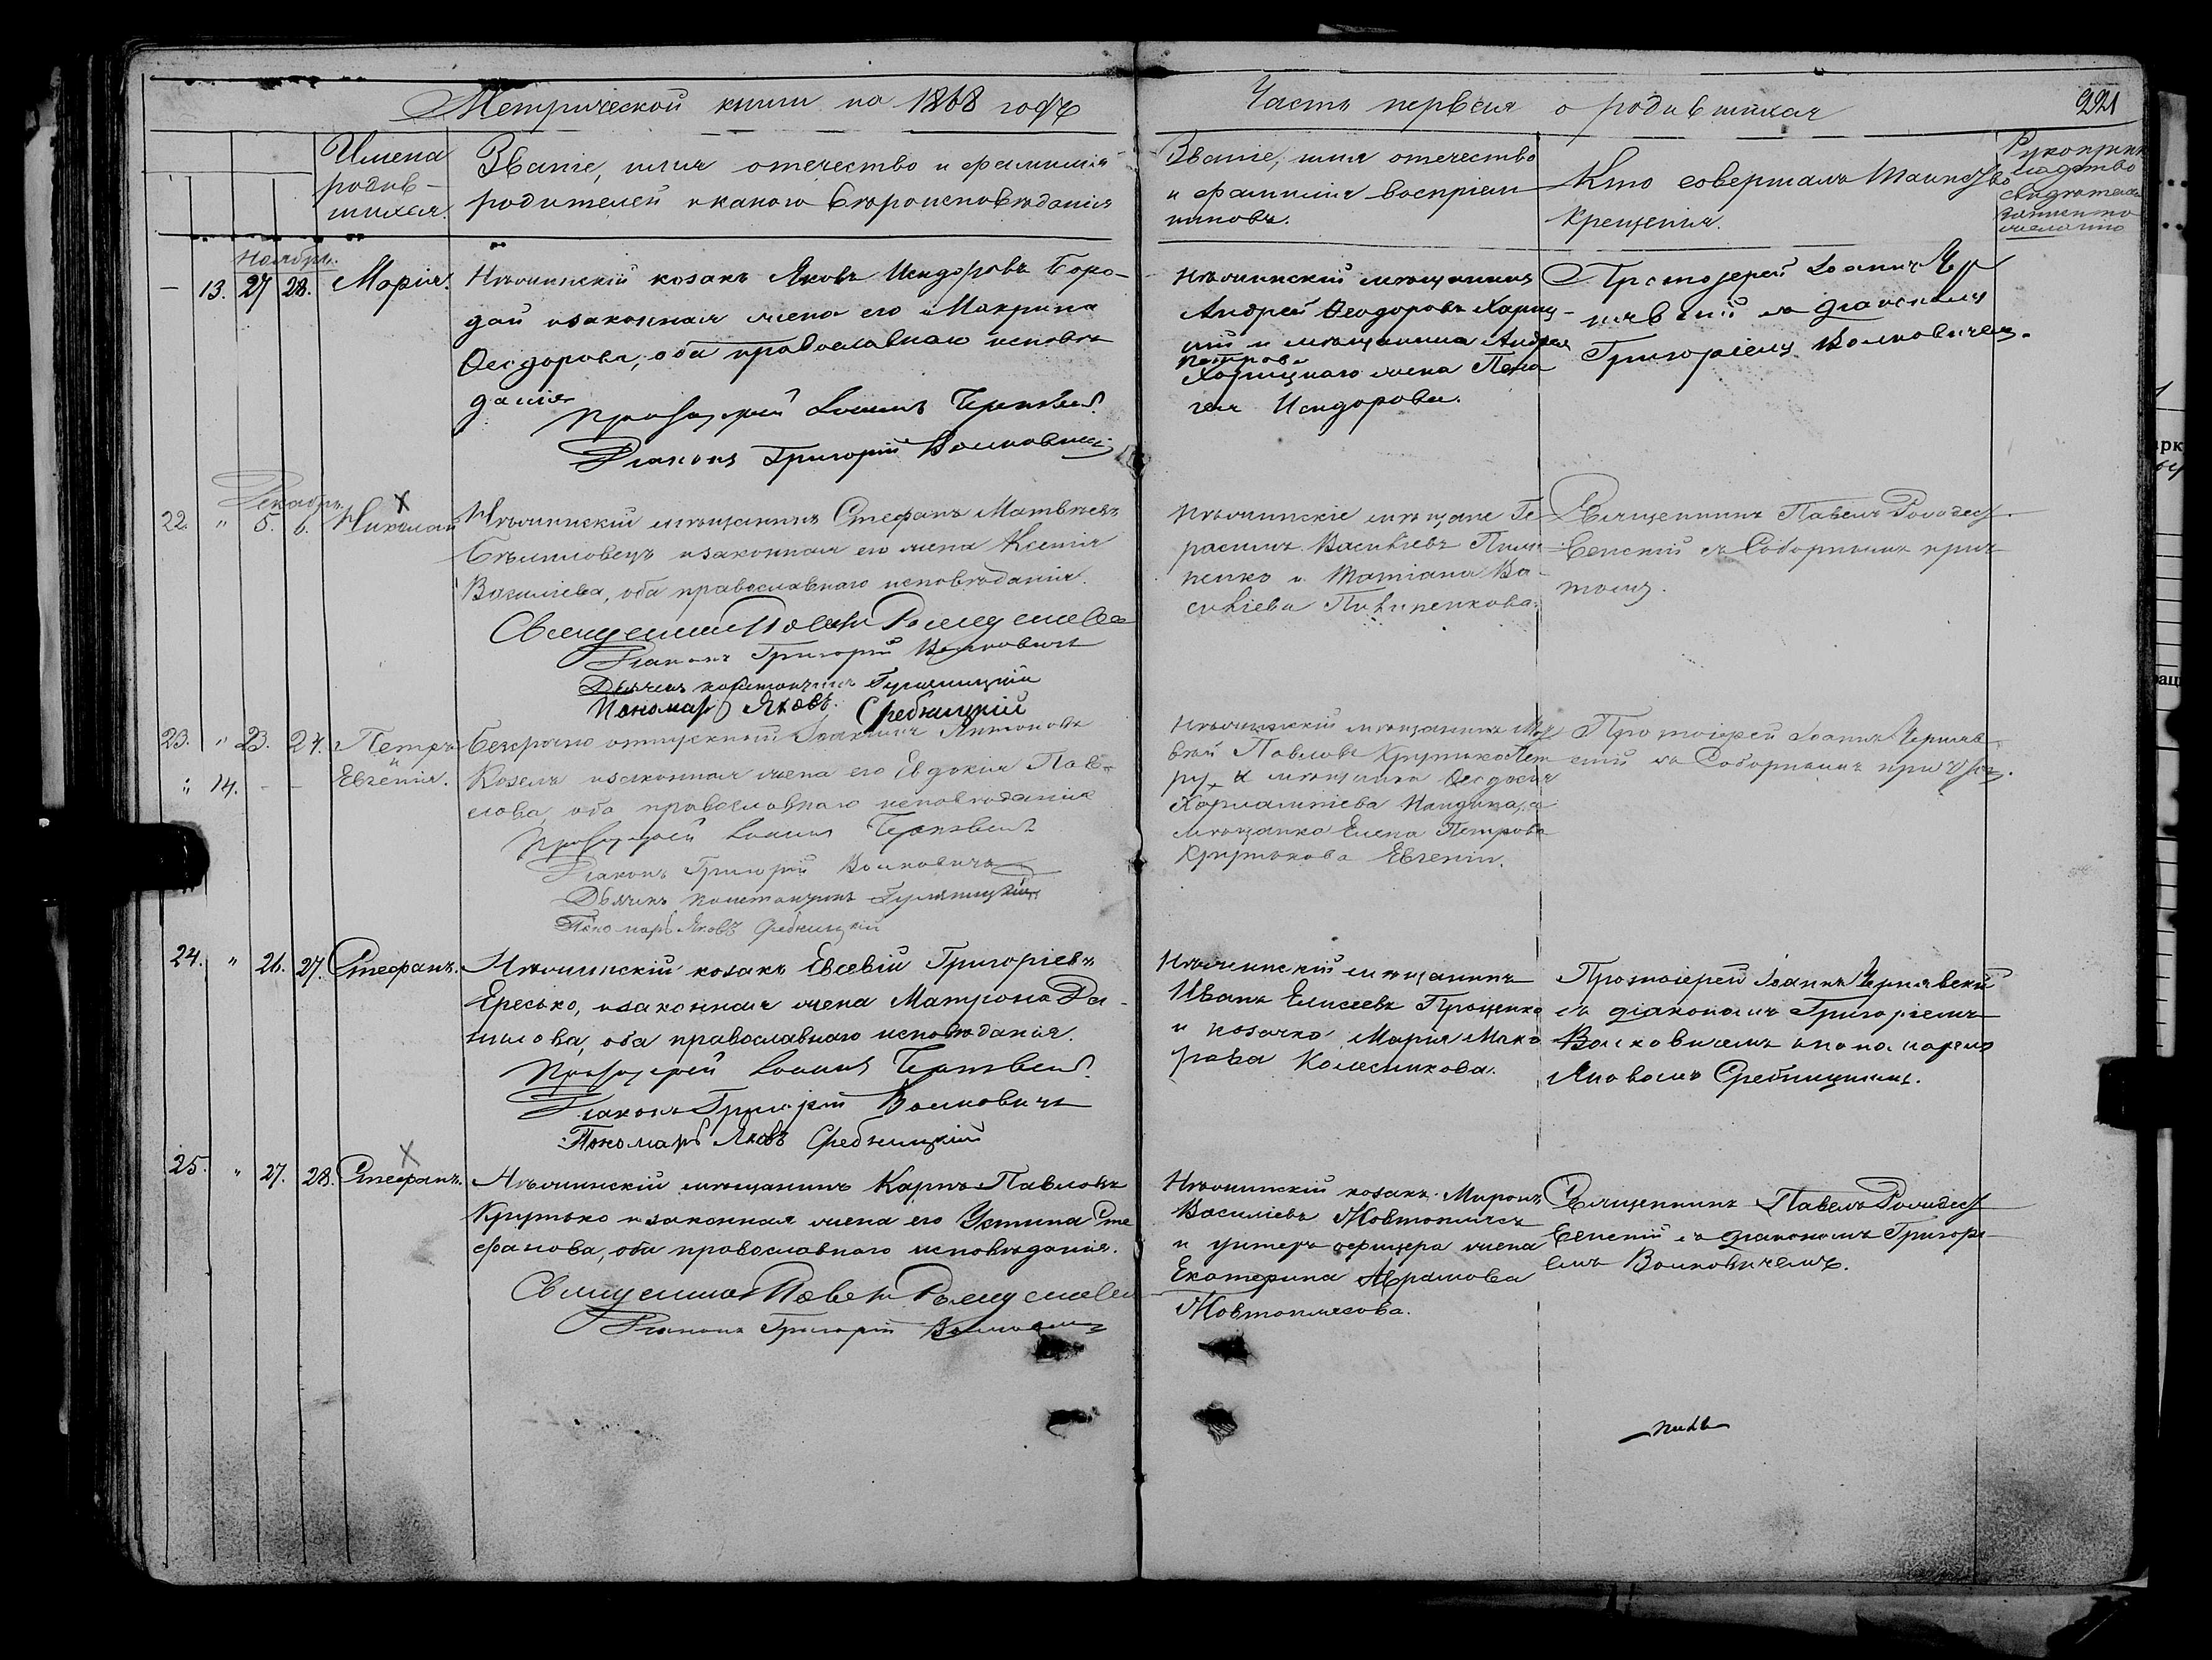 Метрической книги на 1868 годъ
Часть первая о родившихся
221
Имена
родив-
шихся.
Званіе, имя отечество и фамилія
родителей и какого вѣроисповѣданія
Званіе, имя отечество
и фамилія воспріем-
никовъ.
Кто совершалъ таинство
крещенія.
Ноябрь.
— 13. 27 28. Марія.
Нѣжинскій козакъ Яковъ Исидоровъ Боро-
дай и законная жена его Макрина
Ѳеодорова, оба православнаго исповѣ
данія
Протоіерей Іоаннъ Чернявскій.
Діаконъ Григорій Волковичъ
Нѣжинскій мѣщанинъ
Андрей Ѳеодоровъ
и мѣщанина Андрея
Петрова
жена Пела
гея Исидорова.
Протоіерей Іоаннъ Чер
нявскій съ діакономъ
Григоріемъ Волковичемъ.
Декабрь.
22. " 5. 6. Николай
Нѣжинскій мѣщанинъ Стефанъ Матвѣевъ
и законная его жена Ксенія
Василіева, оба православнаго исповѣданія.
Священникъ Павелъ
Діаконъ Григорій Волковичъ
Дьячекъ Константинъ
Пономарь Яковъ Сребницкій
Нѣжинскіе мѣщане Ге
расимъ Василіевъ Пили
пенко и Татіана Ва-
силіева Пилипенкова.
Священникъ Павелъ
съ Соборнымъ прич
томъ.
23. " 23. 24. Петръ
и
" 14. - - Евгенія.
Безсрочно отпускный Іоакимъ Антоновъ
Козелъ и законная жена его Евдокія Пав-
лова, оба православнаго исповѣданія
Протоіерей Іоаннъ Чернявскій
Діаконъ Григорій Волковичъ
Дьячекъ Константинъ
Пономарь Яковъ Сребницкій
Нѣжинскій мѣщанинъ
Павловъ Крутько Пет
ру, и мѣщанка Ѳеодосія
Харлампіева а
мѣщанка Елена Петрова
Крутькова Евгеніи.
Протоіерей Іоаннъ Черняв-
скій съ Соборнымъ причтомъ.
24. " 26. 27. Стефанъ.
Нѣжинскій козакъ Евсевій Григоріевъ
Ересько, и законная жена Матрона Да-
нилова, оба православнаго исповѣданія.
Протоіерей Іоаннъ Чернявскій.
Діаконъ Григорій Волковичъ
Пономарь Яковъ Сребницкій
Нѣжинскій мѣщанинъ
Иванъ Елисеевъ Проценко
и козачка Марія Мака
рова Колесникова.
Протоіерей Іоаннъ Чернявскій
съ діакономъ Григоріемъ
Волковичемъ и пономаремъ
Яковомъ Сребницкимъ.
25. " 27. 28. Стефанъ.
Нѣжинскій мѣщанинъ Карпъ Павловъ
Крутько и законная жена его Устина Сте
фанова, оба православнаго исповѣданія.
Священникъ Павелъ
Діаконъ Григорій Волковичъ
Нѣжинскій козакъ Миронъ
Василіевъ Жовтоплясъ
и унтеръ офицера жена
Екатерина Абрамова
Жовтоплясова.
Священникъ Павелъ
съ діакономъ Григорі-
емъ Волковичемъ.